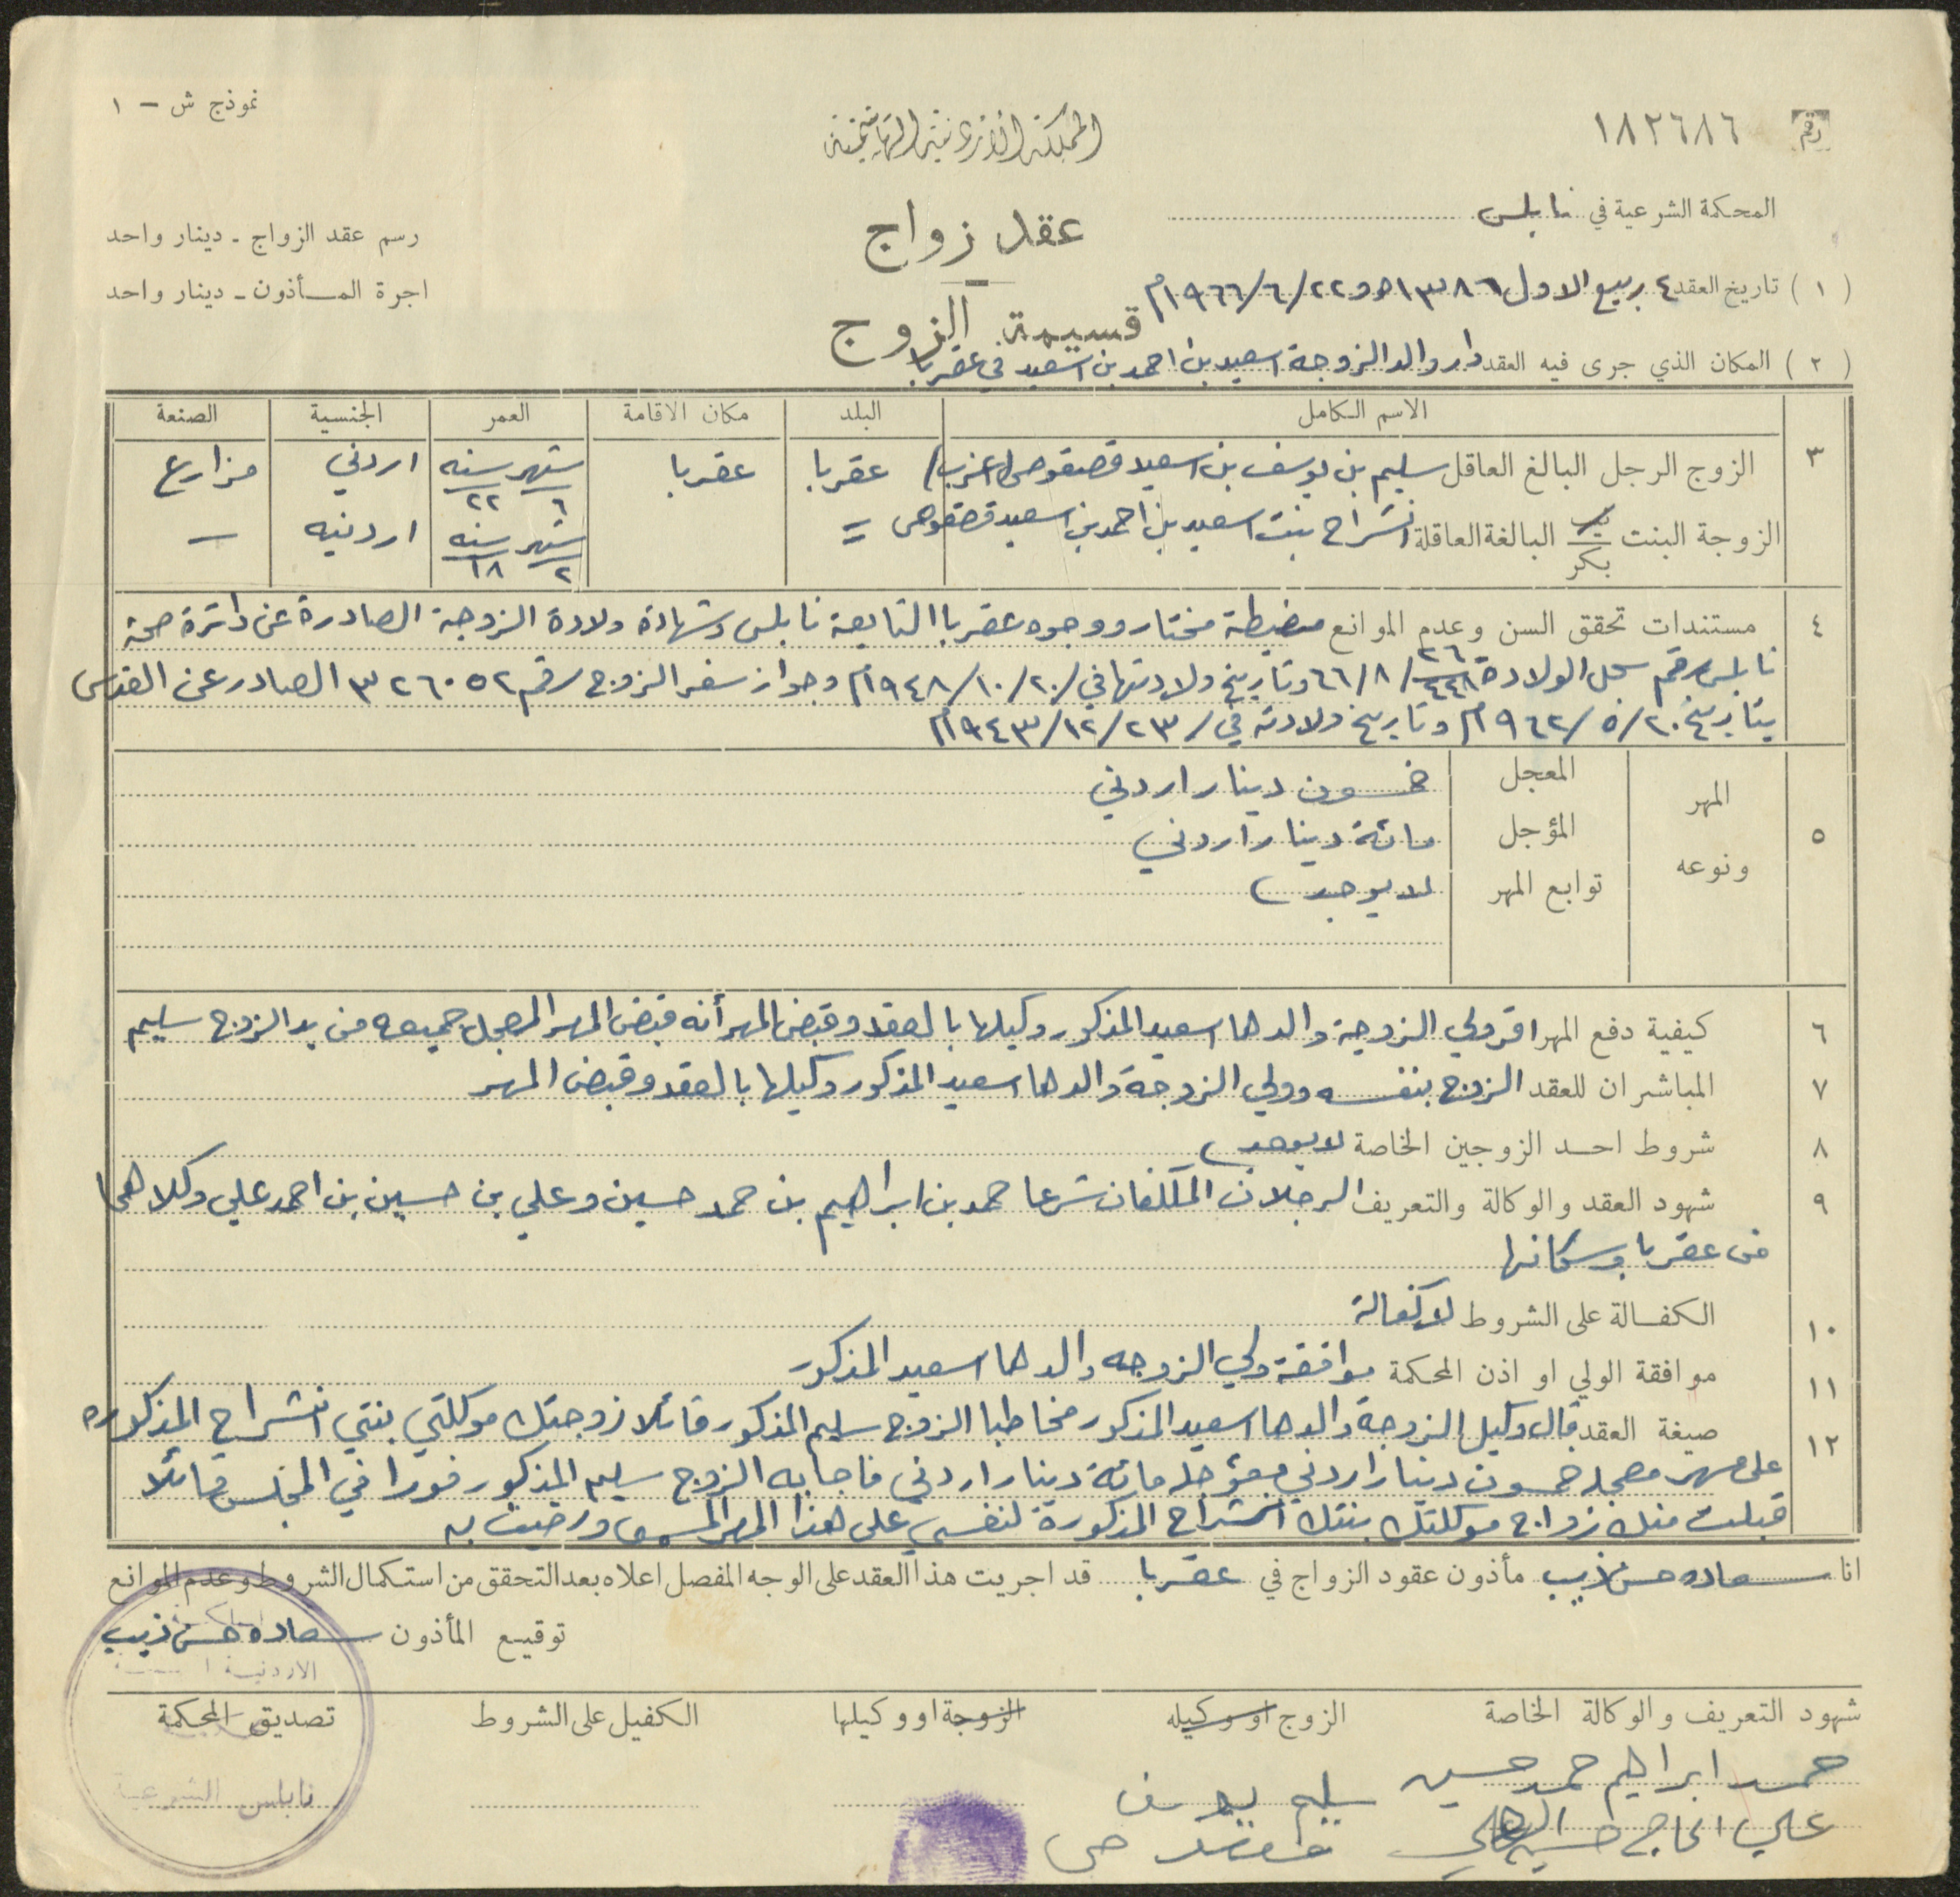 رقم ١٨٢٦٨٦
نموذج ش - ١
المملكة الاردنية الهاشمية
المحكمة الشرعية في نابلس
عقد زواج
رسم عقد الزواج - دينار واحد
اجرة المأذون - دينار واحد
(١) تاريخ العقد ٤ ربيع الاول ١٣٨٦ه و ٢٢/٦/١٩٦٦م
قسيمة الزوج
(٢) المكان الذي جرى فيه العقد دار والد الزوجة اسعيد بن احمد بن اسعيد في عقربا
الاسم الكامل البلد مكان الاقامة العمر الجنسية الصنعة
٣ الزوج الرجل البالغ العاقل سليم بن يوسف بن اسعيد قصقوص (اعزب) عقربا عقربا شهر ٦ سنه ٢٢ اردني مزارع
الزوجة البنت ثيب بكر البالغة العاقلة انشراح بنت اسعيد بن احمد بن اسعيد قصقوص = شهر ٢ سنه ١٨ اردنيه -
٤ مستندات تحقق السن وعدم الموانع مضبطة مختار ووجوه عقربا التابعة نابلس وشهادة ولادة الزوجة الصادرة عن دائرة صحة
نابلس رقم سجل الولادة ٢٦/٤٤٨ ٦٦/٨ وتاريخ ولادتها في/٢٠/١٠/١٩٤٨م وجواز سفر الزوج رقم ٣٢٦٠٥٢ الصادر عن القدس
بتاريخ ٢٠/٥/٩٦٢م وتاريخ ولادته في/٢٣/١٢/١٩٤٣م
٥ المهر ونوعه
المعجل خمسون دينار اردني
المؤجل مائة دينار اردني
توابع المهر لا يوجد
٦ كيفية دفع المهر اقر ولي الزوجة والدها اسعيد المذكور وكيلها بالعقد وقبض المهر أنه قبض المهر المعجل جميعه من يد الزوج سليم
٧ المباشران للعقد الزوج بنفسه وولي الزوجة والدها اسعيد المذكور وكيلها بالعقد وقبض المهر
٨ شروط احد الزوجين الخاصة لا يوجد
٩ شهود العقد والوكالة والتعريف الرجلان المكلفان شرعا حمد بن ابراهيم بن حمد حسين وعلي بن حسين بن احمد علي وكلاهما
من عقربا وسكانها
١٠ الكفالة على الشروط لا كفالة
١١ موافقة الولي او اذن المحكمة موافقة ولي الزوجه والدها اسعيد المذكور
١٢ صيغة العقد قال وكيل الزوجة والدها اسعيد المذكور مخاطبا الزوج سليم المذكور قائلا زوجتك موكلتي بنتي انشراح المذكوره
على مهر معجله خمسون دينار اردني ومؤجله مائة دينار اردني فاجابه الزوج سليم المذكور فورا في المجلس قائلا
قبلت منك زواج موكلتك بنتك انشراح المذكورة لنفسي على هذا المهر المسمى ورضيت به
انا سعاده حسن ذيب مأذون عقود الزواج في عقربا قد اجريت هذا العقد على الوجه المفصل اعلاه بعد التحقق من استكمال الشروط وعدم الموانع
توقيع المأذون سعاده حسن ذيب
الاردنية
شهود التعريف والوكالة الخاصة الزوج او وكيله الزوجة او وكيلها الكفيل على الشروط تصديق المحكمة
حمد ابراهيم حمد حسين
سليم يوسف
نابلس الشرعية
علي الحاج حسين